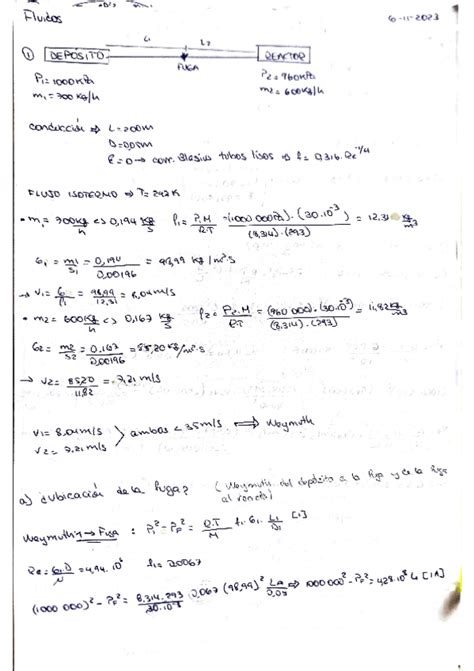 Fluidos 6-11-2023
L1 L2
① DEPÓSITO REACTOR
FUGA
P1=1000KPa P2=960KPa
m1=700kg/h m2=600kg/h
conducción ⇒ L=200m
D=0,05m
ε=0 → corr. Blasius tubos lisos ⇒ f=0,316·Re^-1/4
FLUJO ISOTERMO ⇒ T=
• m1=700 kg/h <> 0,194 kg/s ρ1 = P1·M/R·T = (1000 000)·(30·10^-3)/(8,314)·(293) = 12,31 kg/m3
G1 = m1/S1 = 0,194/0,00196 = 98,99 kg/m2·s
→ V1 = G1/ρ1 = 98,99/12,31 = 8,04m/s
• m2 = 600kg/h <> 0,167 kg/s ρ2 = P2·M/R·T = (960 000)·(30·10^-3)/(8,314)·(293) = 11,82 kg/m3
G2 = m2/S2 = 0,167/0,00196 = 85,20 kg/m2·s
→ V2 = 85,20/11,82 = 7,21 m/s
V1 = 8,04m/s
V2 = 7,21m/s } ambos < 35m/s ⇒ Weymuth
a) ¿ubicación de la fuga? (Weymuth del depósito a la fuga y de la fuga
al reactor)
Weymuth 1 → Fuga : P1^2 - PF^2 = R·T/M f1·G1 L1/D1 [1]
Re = G1·D/μ = 4,94·10^5 f1=
(1000 000)^2 - PF^2 = 8,314·293/30·10^-3 (98,99)^2 ⇒ 1000 000^2 - PF^2 = [1A]